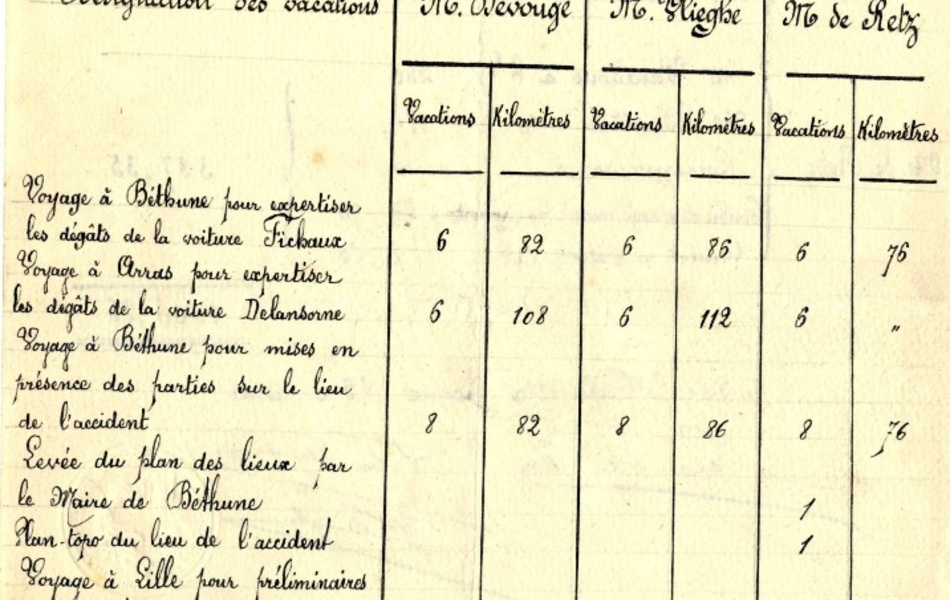 Désignation des vacations M. Devouge M. Hieghe M de Retz
Vacations Kilomètres Vacations Kilomètres Vacations Kilomètres
Voyage à Béthune pour expertiser
les dégâts de la voiture Fichaux 6 82 6 86 6 76
Voyage à Arras pour expertiser
les dégâts de la voiture Delansorne 6 108 6 112 6 "
Voyage à Béthune pour mises en
présence des parties sur le lieu
de l'accident 8 82 8 86 8 76
Levée du plan des lieux par
le Maire de Béthune 1
Plan-topo du lieu de l'accident 1
Voyage à Lille pour préliminaires